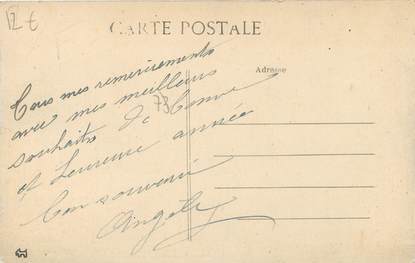 12 €
CARTE POSTALE
Adresse
73
Tous mes remerciements
avec mes meilleurs
souhaits de bonne
et heureuse année
Bon souvenir